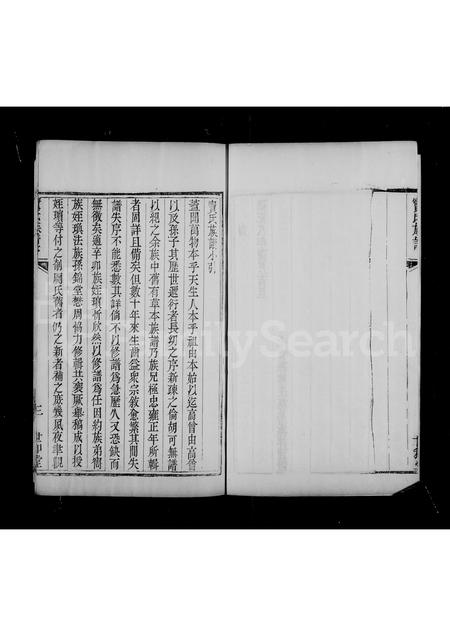 族譜小引
蓋聞萬物本乎天生人本乎祖由本始以迄高曾由高曾
以及孫子其歷世遞行者長幼之序新疎之倫胡可無譜
以紀之余族中舊有草本族譜乃族兄極忠雍正年所輯
者固詳且備矣但數十年來生齒益衆宗敘愈繁其間失
譜失序不能悉數其詳倘不以修譜為急歷久又恐缺而
無徵矣適辛卯族姪瓚忻欣然以修譜為任因約族弟
族姪璵法族孫錦堂懋周協力修輯共襄厥舉稿成以授
姪瓚等付之剞劂氏舊者仍之新者補之族幾夙夜聿觀
三
世
堂
族譜
FamilySearch